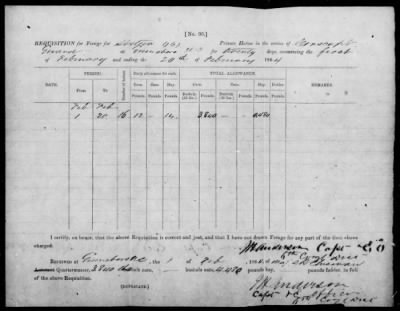 [No. 35.]
REQUISITION for Forage for sixteen (16) Private Horses in the service of
Guard at Greensboro N.C. for twenty days, commencing the first
of February and ending the 20th of February 1864
DATE. PERIOD. Number of Horses. Daily allowance for each. TOTAL ALLOWANCE. REMARKS.
From To Corn. Oats. Hay. Corn. Oats. Hay.
Pounds. Pounds. Pounds. Bushels. Pounds. Bushels. Pounds. Pounds.
Feb Feb
1 20 16 12 — 14 3840 — 4480
I certify, on honor, that the above Requisition is correct and just, and that I have not drawn Forage for any part of the time above
charged.
J M Anderson Capt
RECEIVED at Greensboro the 1 of Feb 1864, of
Quartermaster, 3840 bushels corn, — bushels oats, 4480 pounds hay, pounds fodder, in full
of the above Requisition.
(DUPLICATE.)
J M Anderson
Capt